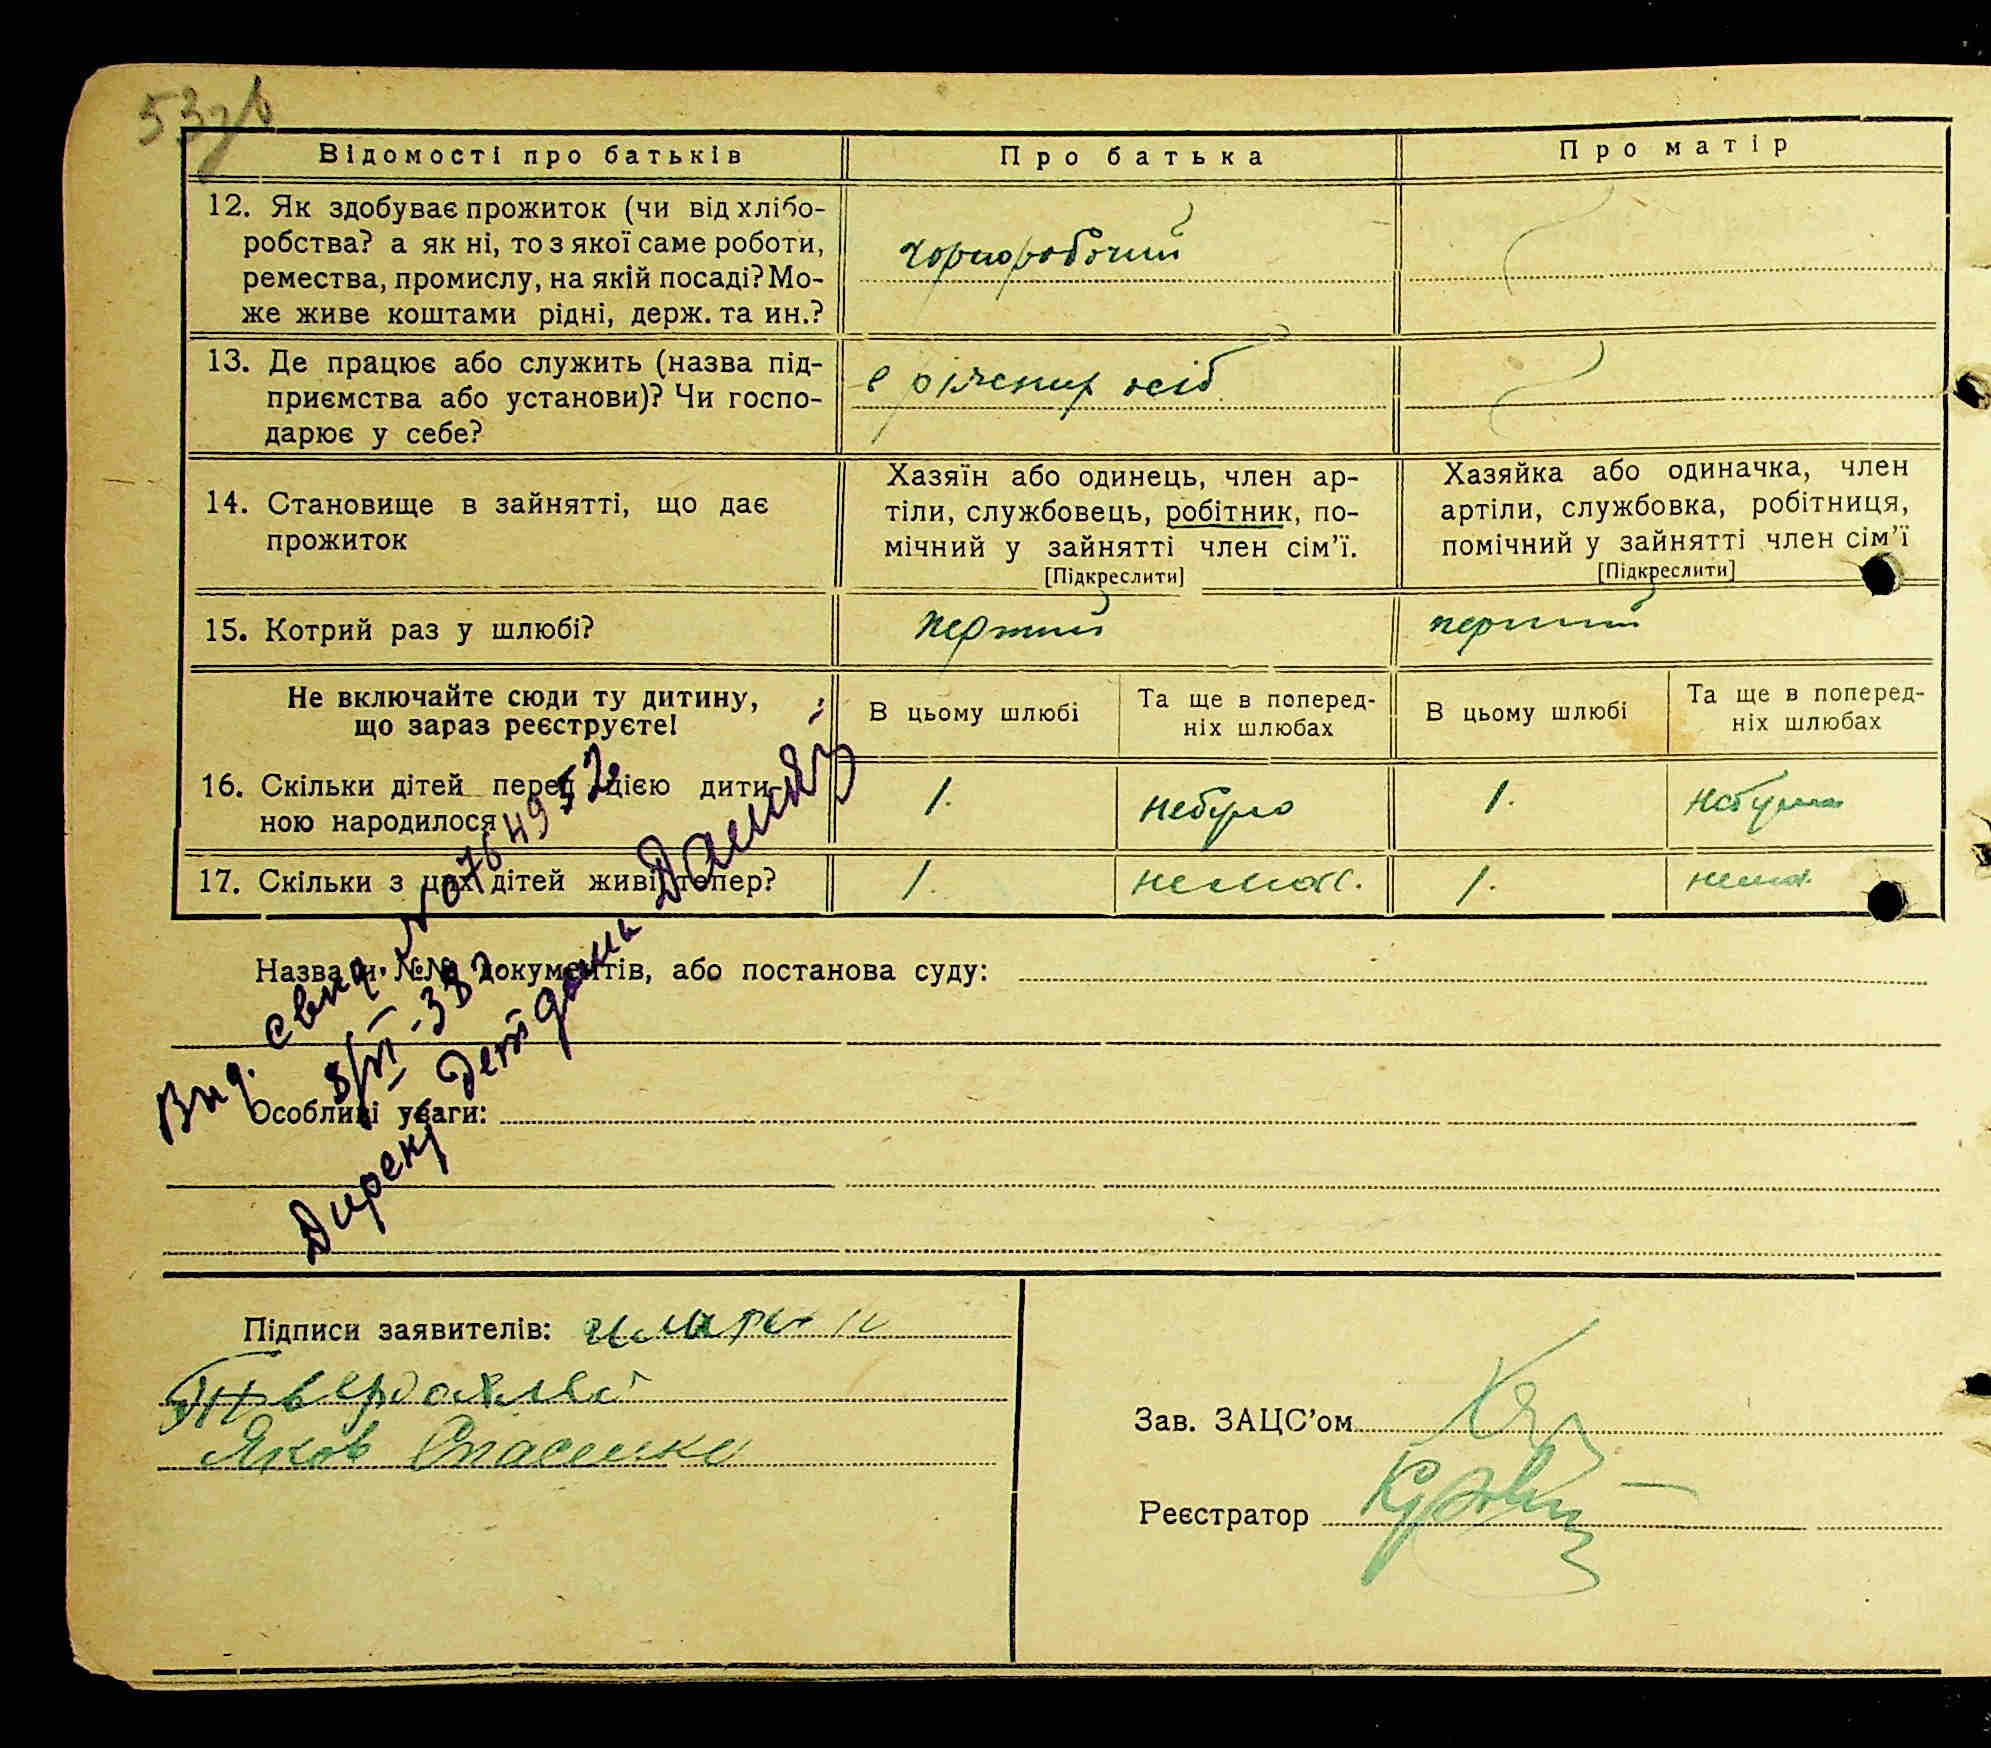 53зв
Відомості про батьків
Про батька
Про матір
12. Як здобуває прожиток (чи від хлібо-
робства? а як ні, то з якої саме роботи,
ремества, промислу, на якій посаді? Мо-
же живе коштами рідні, держ. та ин.?
чорноробочий
13. Де працює або служить (назва під-
приємства або установи)? Чи госпо-
дарює у себе?
в ріжених осіб
14. Становище в зайнятті, що дає
прожиток
Хазяїн або одинець, член ар-
тіли, службовець, робітник, по-
мічний у зайнятті член сім'ї.
[Підкреслити]
Хазяйка або одиначка, член
артіли, службовка, робітниця,
помічний у зайнятті член сім'ї
[Підкреслити]
15. Котрий раз у шлюбі?
перший
перший
Не включайте сюди ту дитину,
що зараз реєструєте!
В цьому шлюбі
Та ще в поперед-
ніх шлюбах
В цьому шлюбі
Та ще в поперед-
ніх шлюбах
16. Скільки дітей перед цією дити-
ною народилося
1.
небуло
1.
небуло
17. Скільки з цих дітей живі тепер?
1.
немає.
1.
нема.
Назва и №№ документів, або постанова суду:
Особливі уваги:
Вид. свид. №
8/VI-38
Директ. детдома
Підписи заявителів:
Яков Спасенко
Зав. ЗАЦС'ом
Реєстратор